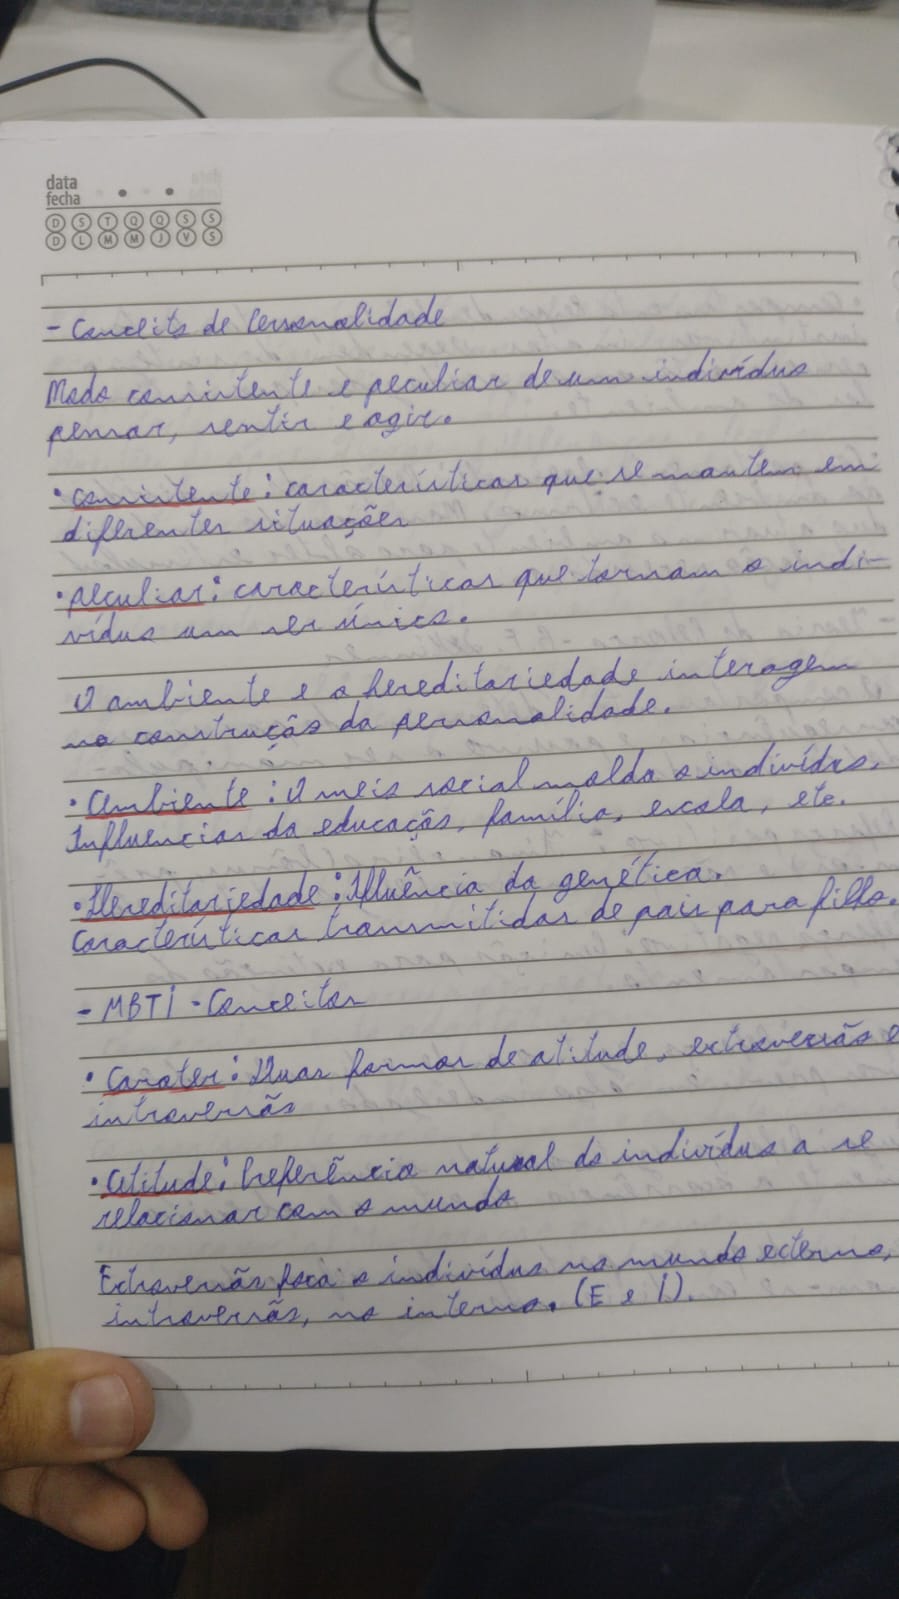 data
fecha
D S T Q Q S S
D L M M J V S
- Conceito de Personalidade
Modo consistente e peculiar de um indivíduo
pensar, sentir e agir.
• consistente: características que se mantem em
diferentes situações
• peculiar: características que tornam o indi-
víduo um ser único.
O ambiente e a hereditariedade interagem
na construção da personalidade.
• Ambiente: O meio social molda o indivíduo.
Influencias da educação, família, escola, etc.
• Hereditariedade: Ifluência da genética.
Características transmitidas de pais para filho.
- MBTI - Conceitos
• Carater: Duas formas de atitude, extroversão e
introversão
• Atitude: Preferência natural do indivíduo a se
relacionar com o mundo
Extroversão foca o indivíduo no mundo externo,
introversão, no interno. (E e I).